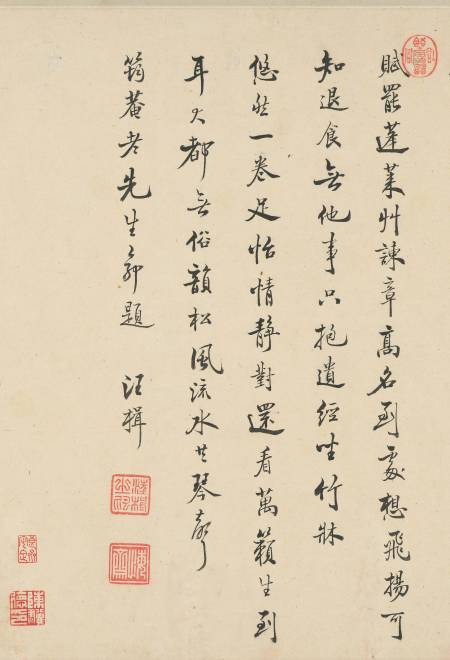 賦罷蓬萊艸諫章高名到處想飛揚可
知退食無他事只抱遺經坐竹牀
悠然一卷足怡情靜對還看萬籟生到
耳大都無俗韻松風流水共琴聲
筠菴老先生命題 汪楫
汪楫之印
悔齋